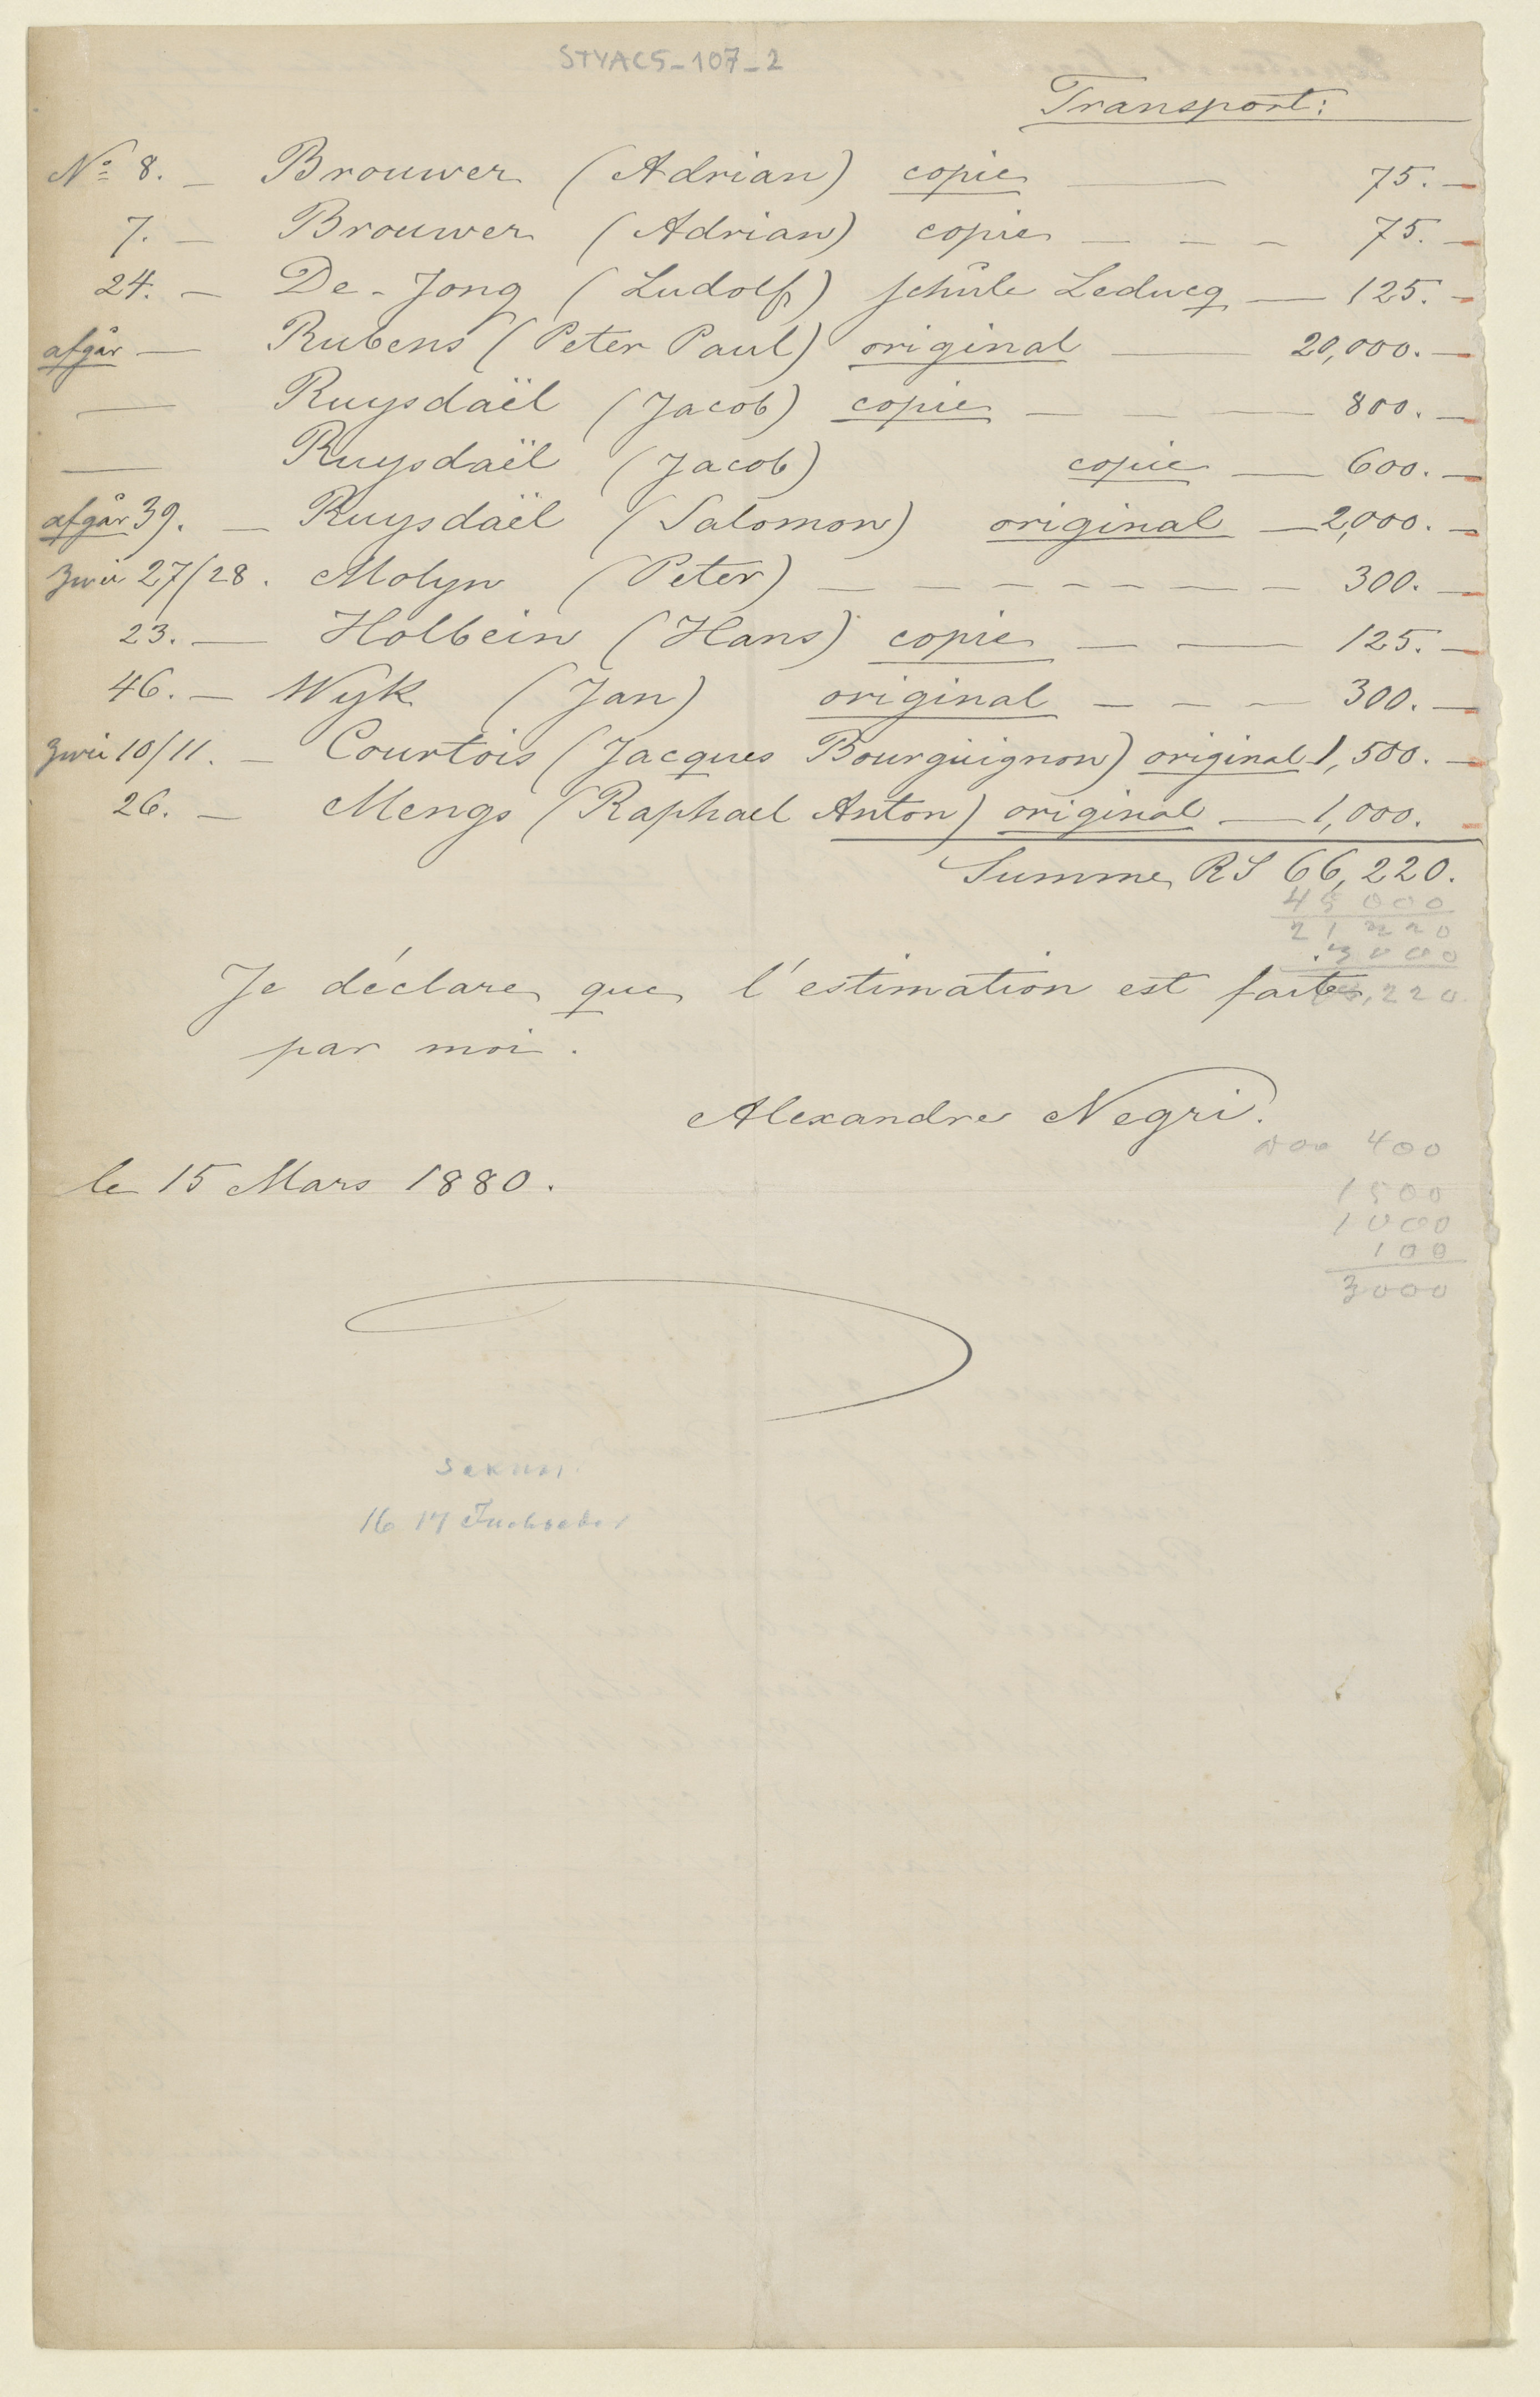 STYACS-107-2
Transport:
No 8. — Brouwer (Adrian) copie — 75. —
7. — Brouwer (Adrian) copie — — — 75. —
24. — De-Jong (Ludolf) schule Leducq — 125. —
afgår — Rubens (Peter Paul) original — 20,000. —
— Ruysdaël (Jacob) copie — — — 800. —
— Ruysdaël (Jacob) copie — 600. —
afgår 39. — Ruysdaël (Salomon) original — 2,000. —
zwei 27/28. Molyn (Peter) — — — — — — — 300. —
23. — Holbein (Hans) copie — — 125. —
46. — Wyk (Jan) original — — — 300. —
zwei 10/11. — Courtois (Jacques Bourguignon) original 1,500. —
26. — Mengs (Raphael Anton) original — 1,000.
Summe RS 66,220.
45 000
21 220
3000
,220
Je déclare que l'estimation est faite
par moi.
Alexandre Negri.
400
le 15 Mars 1880.
1500
1000
100
3000
16 17